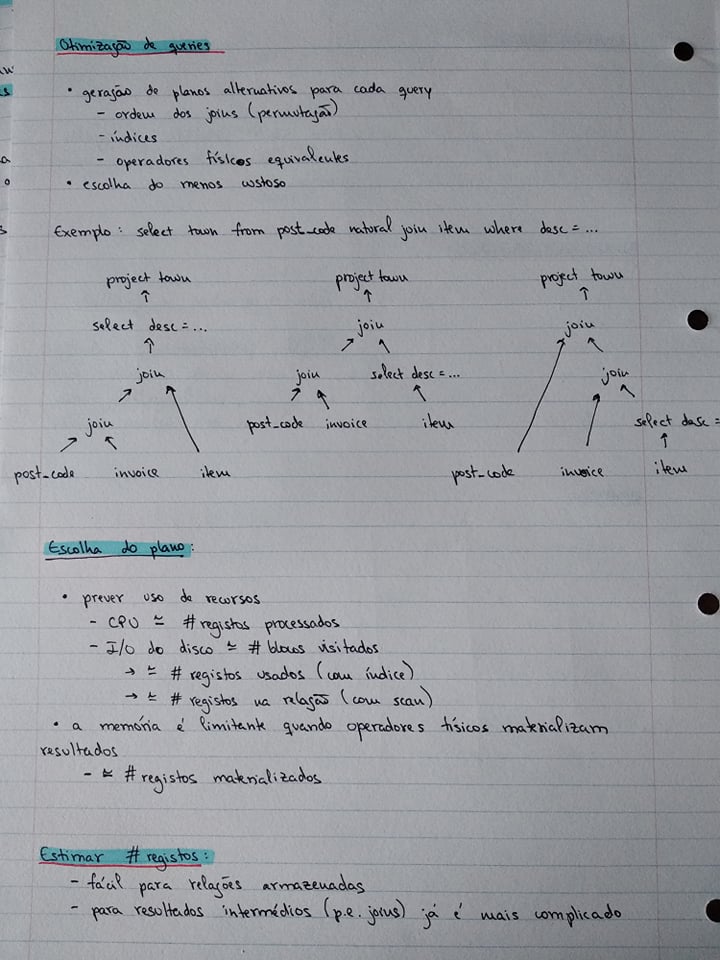 Otimização de queries
• geração de planos alternativos para cada query
- ordem dos joins (permutação)
- índices
- operadores físicos equivalentes
• escolha do menos custoso
Exemplo: select town from post_code natural join item where desc = ...
project town project town project town
↑ ↑ ↑
select desc = ... join join
join join select desc = ... join
join post_code invoice item select desc =
post_code invoice item post_code invoice item
Escolha do plano:
• prever uso de recursos
- CPU ≃ # registos processados
- I/O do disco ≃ # blocos visitados
→ ≃ # registos usados (com índice)
→ ≃ # registos na relação (com scan)
• a memória é limitante quando operadores físicos materializam
resultados
- ≃ # registos materializados
Estimar # registos:
- fácil para relações armazenadas
- para resultados intermédios (p.e. joins) já é mais complicado